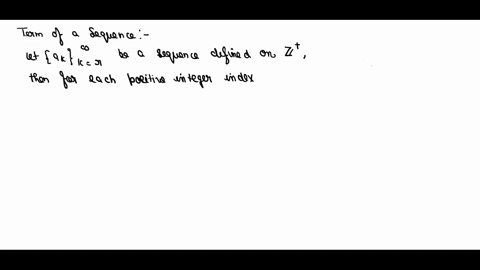 Term of a Sequence:-
Let {a_k}_{k=r}^∞ be a sequence defined on ℤ⁺,
then for each positive integer index